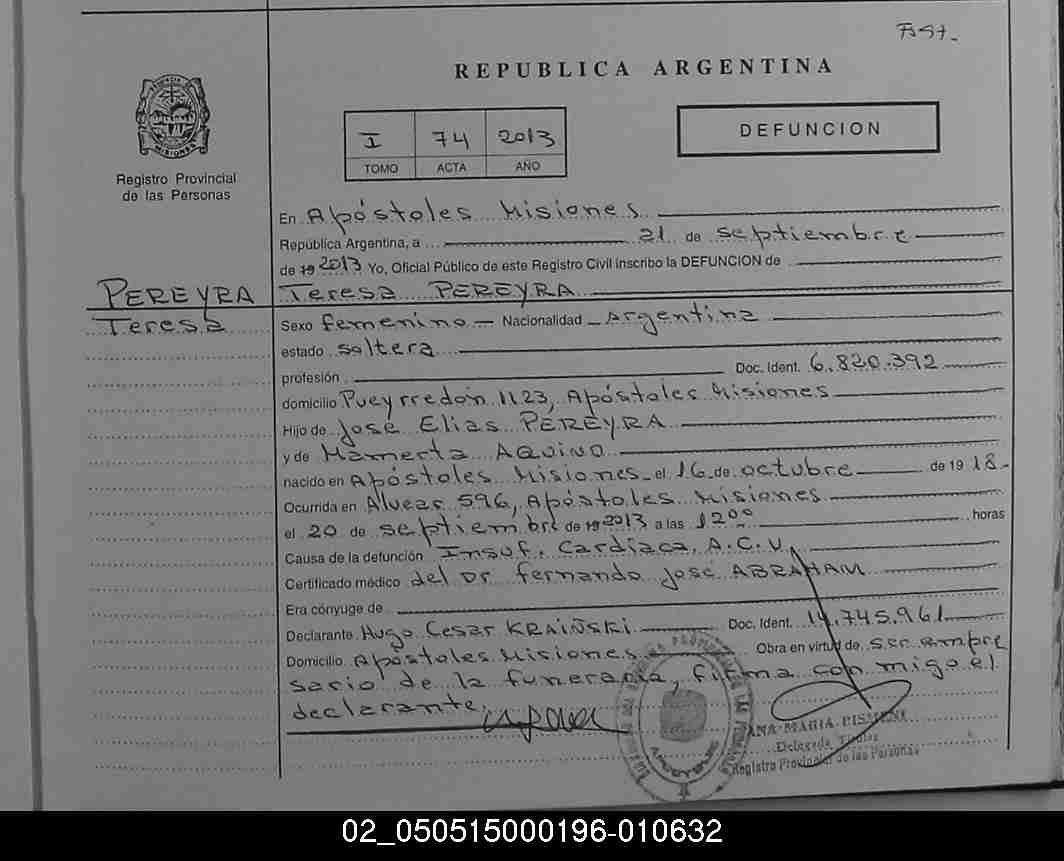 REPUBLICA ARGENTINA
I 74 2013
TOMO ACTA AÑO
DEFUNCION
MISIONES
Registro Provincial
de las Personas
En Apóstoles Misiones
República Argentina, a 21 de septiembre
de 19 2013 Yo, Oficial Público de este Registro Civil inscribo la DEFUNCION de
PEREYRA Teresa PEREYRA
Teresa Sexo femenino Nacionalidad Argentina
estado soltera
profesión Doc. Ident. 6.820.392
domicilio Pueyrredón 1123, Apóstoles Misiones
Hijo de José Elias PEREYRA
y de Mamerta AQUINO
nacido en Apóstoles Misiones el 16 de octubre de 19 18
Ocurrida en Alvear 596, Apóstoles Misiones
el 20 de septiembre de 19 2013 a las 12 00 horas
Causa de la defunción Insuf. Cardiaca, A.C.V.
Certificado médico del Dr. fernando José ABRAHAM
Era cónyuge de
Declarante Hugo Cesar KRAIÑSKI Doc. Ident. 14.745.961
Domicilio Apóstoles Misiones Obra en virtud de ser empre
sario de la funeraria, firma con migo el
declarante.
ANA MARIA
Delegada Titular
Registro Provincial de las Personas
APOSTOLES
02_050515000196-010632